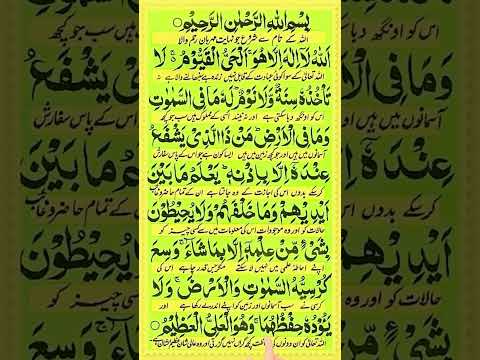 بِسْمِ اللهِ الرَّحْمٰنِ الرَّحِيْمِ
اللہ کے نام سے شروع جو نہایت مہربان رحم والا
اَللهُ لَاۤ اِلٰهَ اِلَّا هُوَ ۚ اَلْحَیُّ الْقَیُّوْمُ ۚ لَا
اللہ تعالیٰ کے سوا کوئی عبادت کے قابل نہیں زندہ ہے
تَاْخُذُهٗ سِنَةٌ وَّلَا نَوْمٌ ؕ لَهٗ مَا فِی السَّمٰوٰتِ
اس کو اونگھ دبا سکتی ہے اور نہ نیند اسی کے مملوک ہیں سب جو کچھ
وَمَا فِی الْاَرْضِ ؕ مَنْ ذَا الَّذِیْ یَشْفَعُ
آسمانوں میں ہیں اور جو کچھ زمین میں ہیں ایسا کون ہے جو اس کے پاس سفارش
عِنْدَهٗۤ اِلَّا بِاِذْنِهٖ ؕ یَعْلَمُ مَا بَیْنَ
کر سکے بدوں اس کی اجازت کے وہ جانتا ہے ان کے تمام حاضر و غائب
اَیْدِیْهِمْ وَمَا خَلْفَهُمْ ۚ وَلَا یُحِیْطُوْنَ
حالات کو اور وہ موجودات اس کی معلومات میں سے کسی چیز کو
بِشَیْءٍ مِّنْ عِلْمِهٖۤ اِلَّا بِمَا شَآءَ ۚ وَسِعَ
اپنے احاطۂ علمی میں نہیں لا سکتے مگر جس قدر چاہے اس کی
كُرْسِیُّهُ السَّمٰوٰتِ وَالْاَرْضَ ۚ وَلَا
کرسی نے سب آسمانوں اور زمین کو اپنے اندر لے رکھا ہے اور
یَـُٔوْدُهٗ حِفْظُهُمَا ۚ وَهُوَ الْعَلِیُّ الْعَظِیْمُ
اللہ تعالیٰ کو ان دونوں کی حفاظت کچھ گراں نہیں گزرتی اور وہ عالی شان عظیم الشان